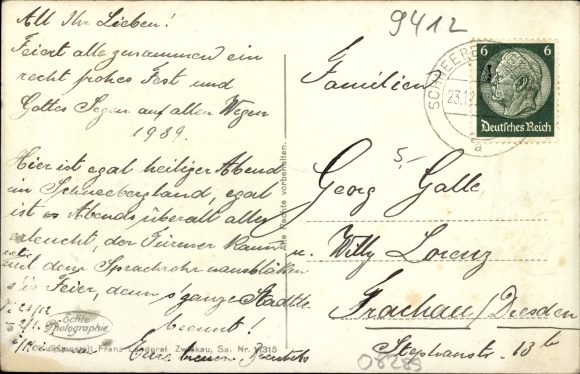 All Ihr Lieben!
Feiert alle zusammen ein
recht frohes Fest und
Gottes Segen auf allen Wegen
1939.
Hier ist egal heiliger Abend
im Schneebergland, egal
ist Abends überall alles
erleucht, der Türmer kann
mit dem Sprachrohr
Feier, denn s'ganze Städtle
brennt!
Eure treuen
Echte
Photographie
Franz Landgraf, Zwickau, Sa. Nr.
Alle Rechte vorbehalten.
9412
SCHNEEBERG
23.12.
a
6 6
Deutsches Reich
Familien
5,-
Georg Galle
u. Willy Lorenz
Trachau/Dresden
Stephanstr. 13 b
08289